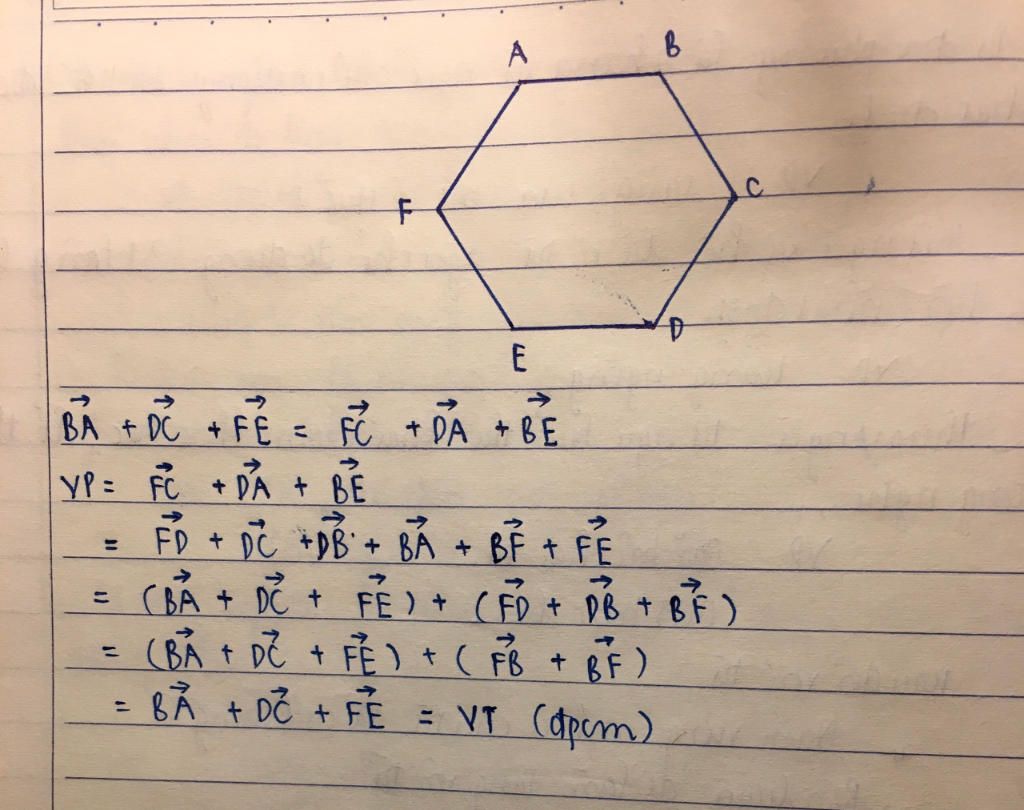 A B
F C
E D
$\overrightarrow{BA} + \overrightarrow{DC} + \overrightarrow{FE} = \overrightarrow{FC} + \overrightarrow{DA} + \overrightarrow{BE}$
VP = $\overrightarrow{FC} + \overrightarrow{DA} + \overrightarrow{BE}$
= $\overrightarrow{FD} + \overrightarrow{DC} + \overrightarrow{DB} + \overrightarrow{BA} + \overrightarrow{BF} + \overrightarrow{FE}$
= $(\overrightarrow{BA} + \overrightarrow{DC} + \overrightarrow{FE}) + (\overrightarrow{FD} + \overrightarrow{DB} + \overrightarrow{BF})$
= $(\overrightarrow{BA} + \overrightarrow{DC} + \overrightarrow{FE}) + (\overrightarrow{FB} + \overrightarrow{BF})$
= $\overrightarrow{BA} + \overrightarrow{DC} + \overrightarrow{FE}$ = VT (đpcm)